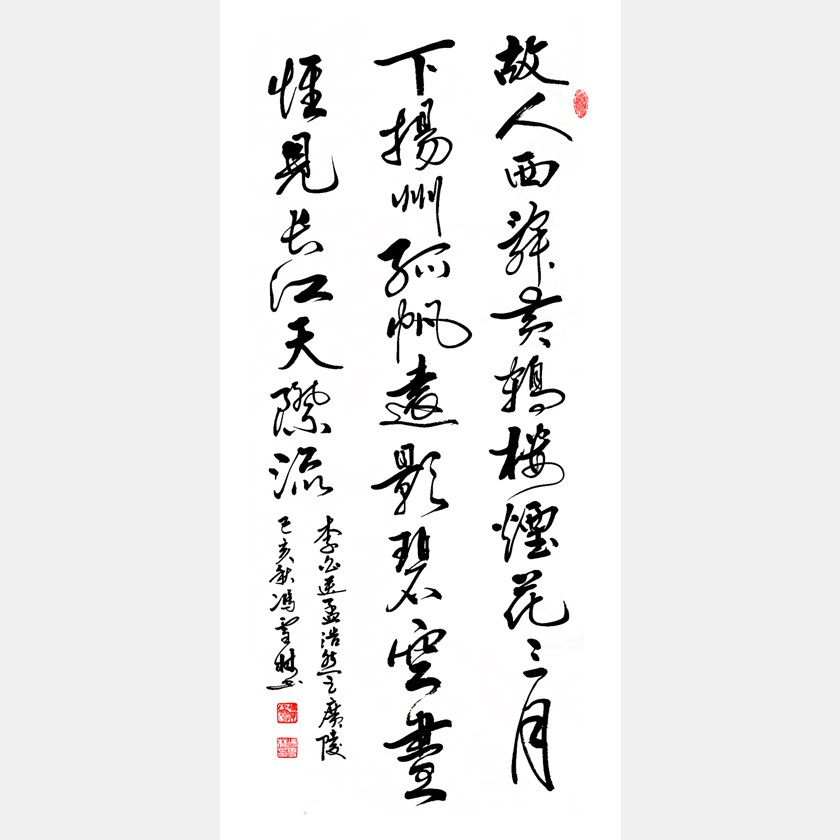 故人西辭黄鶴楼煙花三月
下揚州孤帆遠影碧空盡
惟見长江天際流
李白送孟浩然之廣陵
己亥秋馮雪林书